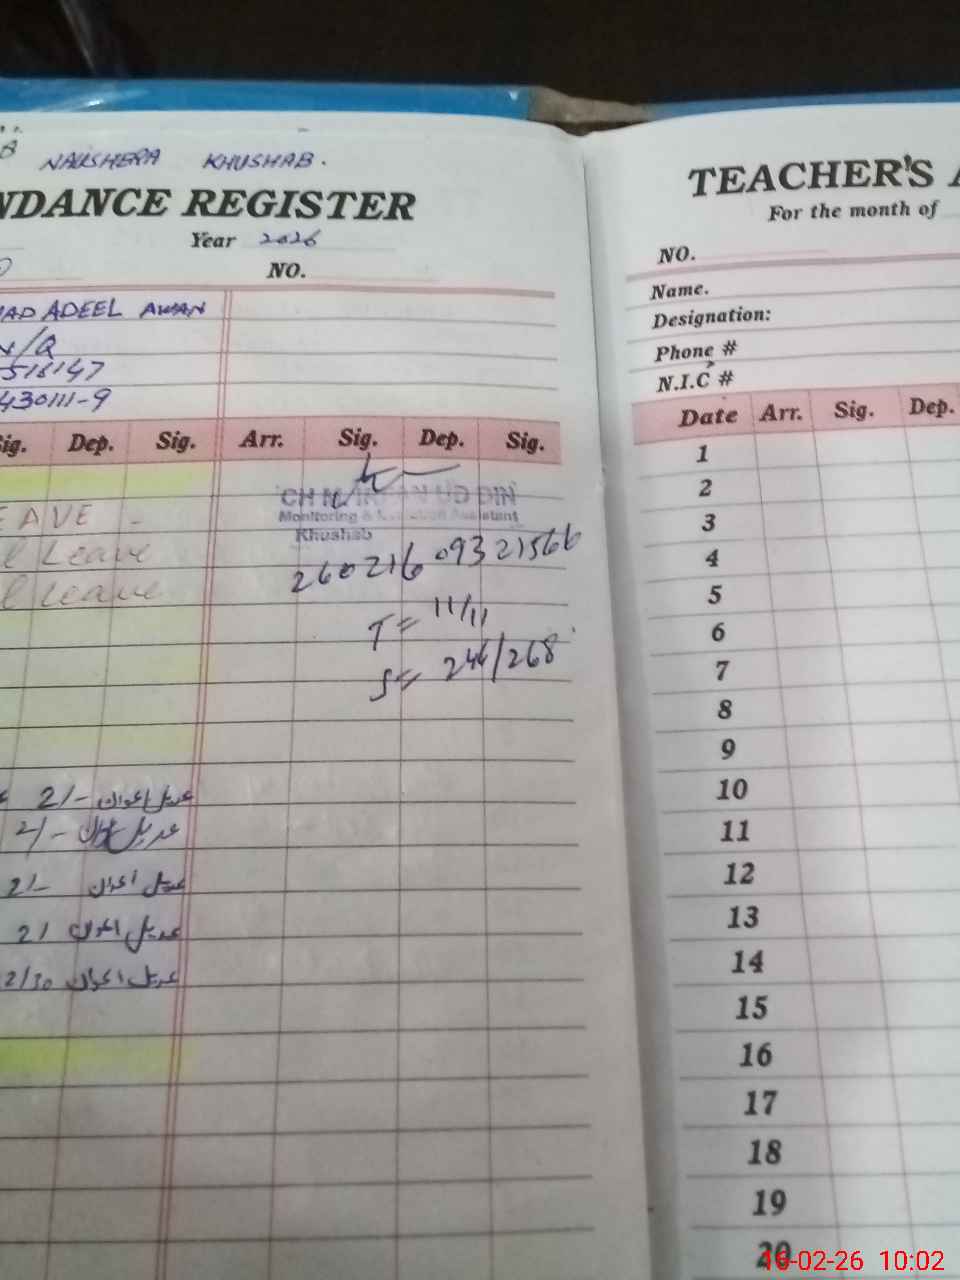 NAUSHERA KHUSHAB.
NDANCE REGISTER
Year 2026
NO.
ADEEL AWAN
518147
430111-9
Sig. Dep. Sig. Arr. Sig. Dep. Sig.
Monitoring &
Khushab
EAVE -
Leave
Leave
260216 09321566
T= 11/11
S= 246/268
2/- عدیل اعوان
2/- عدیل اعوان
2/- عدیل اعوان
2/ عدیل اعوان
2/30 عدیل اعوان
TEACHER'S A
For the month of
NO.
Name.
Designation:
Phone #
N.I.C #
Date Arr. Sig. Dep.
1
2
3
4
5
6
7
8
9
10
11
12
13
14
15
16
17
18
19
20
16-02-26 10:02